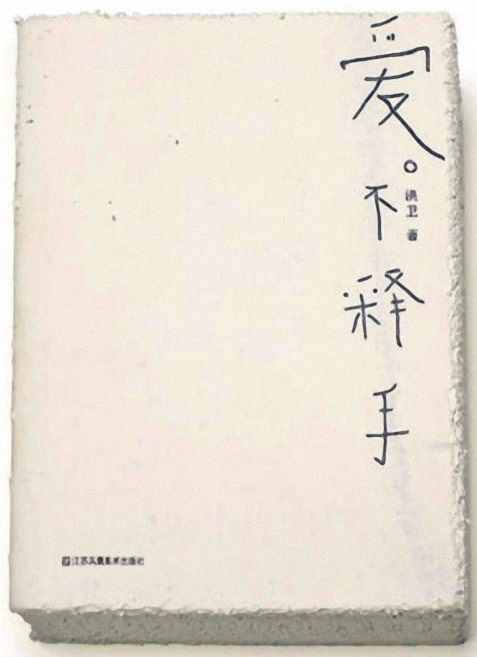 爱。不释手
洪卫 著
江苏凤凰美术出版社